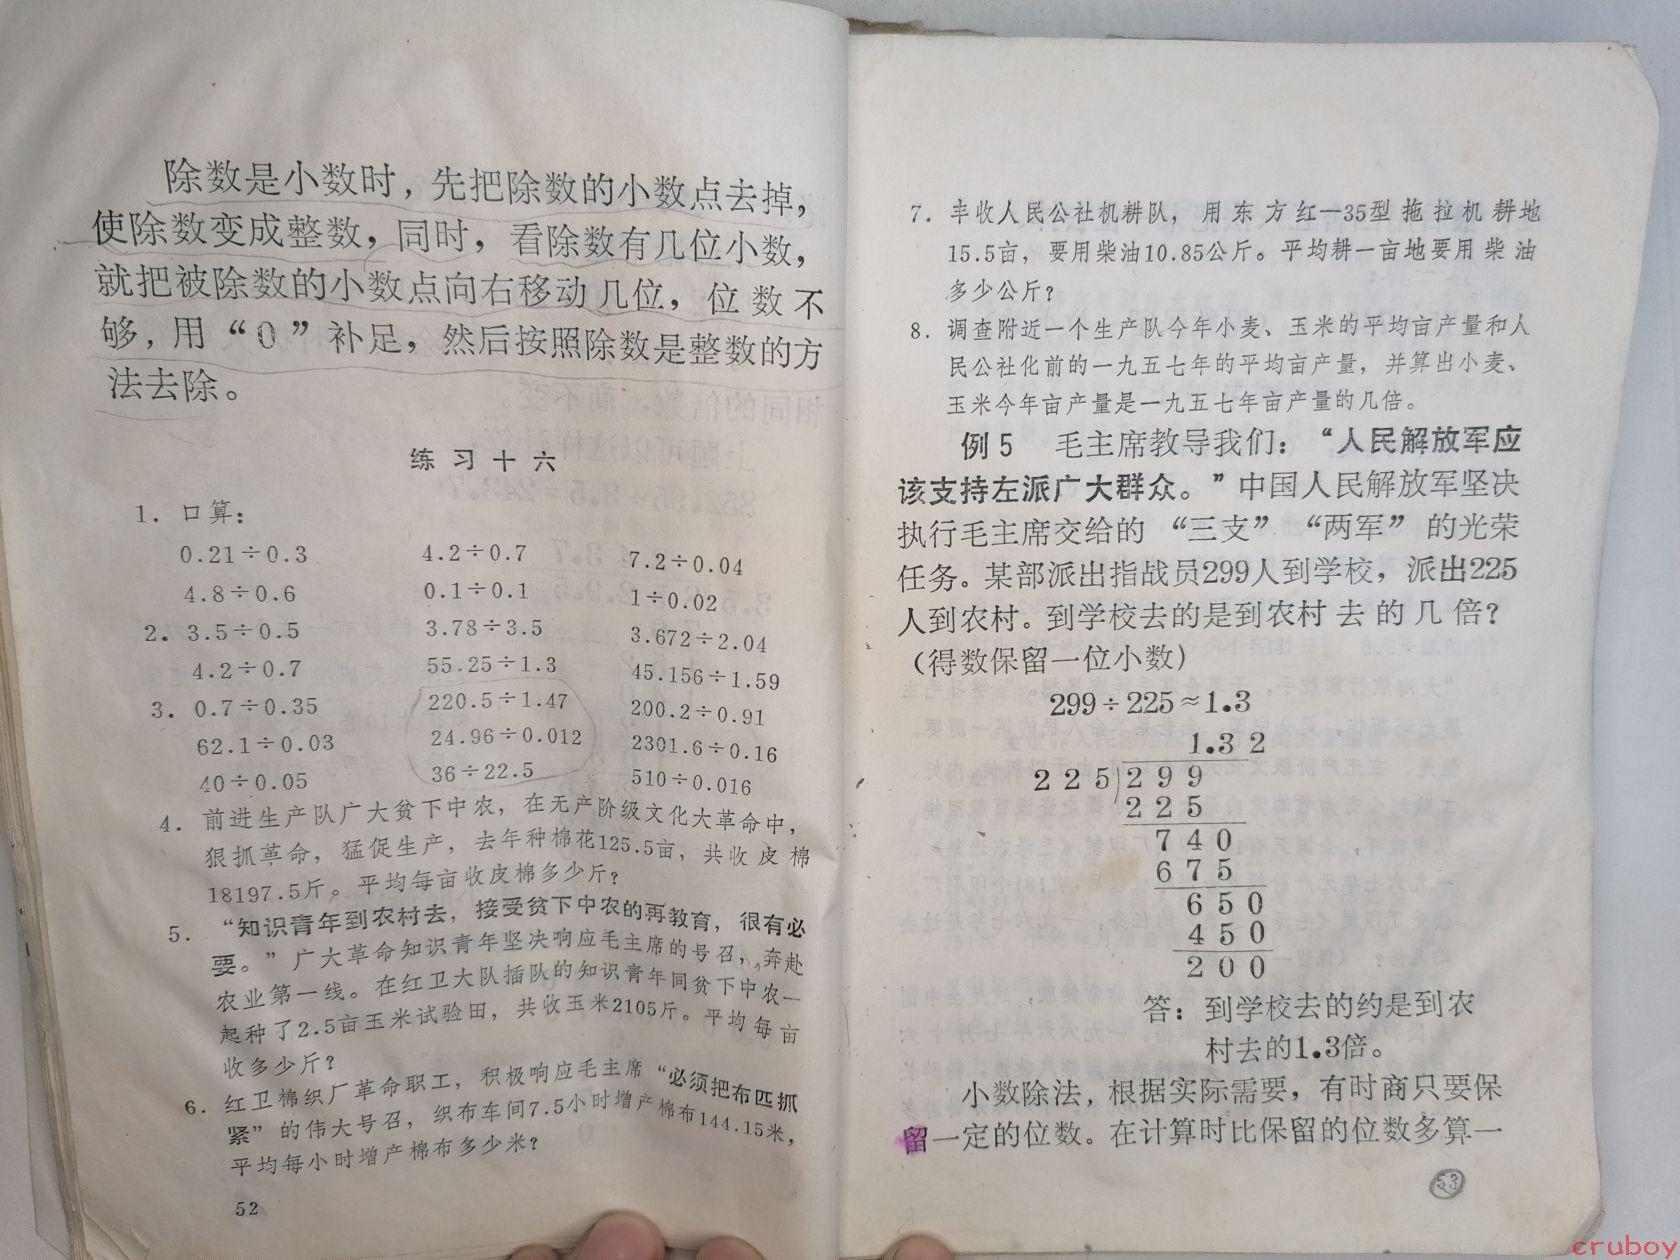 除数是小数时，先把除数的小数点去掉，
使除数变成整数，同时，看除数有几位小数，
就把被除数的小数点向右移动几位，位数不
够，用“0”补足，然后按照除数是整数的方
法去除。
练习十六
1. 口算：
0.21÷0.3 4.2÷0.7 7.2÷0.04
4.8÷0.6 0.1÷0.1 1÷0.02
2. 3.5÷0.5 3.78÷3.5 3.672÷2.04
4.2÷0.7 55.25÷1.3 45.156÷1.59
3. 0.7÷0.35 220.5÷1.47 200.2÷0.91
62.1÷0.03 24.96÷0.012 2301.6÷0.16
40÷0.05 36÷22.5 510÷0.016
4. 前进生产队广大贫下中农，在无产阶级文化大革命中，
狠抓革命，猛促生产，去年种棉花125.5亩，共收皮棉
18197.5斤。平均每亩收皮棉多少斤？
5. “知识青年到农村去，接受贫下中农的再教育，很有必
要。”广大革命知识青年坚决响应毛主席的号召，奔赴
农业第一线。在红卫大队插队的知识青年同贫下中农一
起种了2.5亩玉米试验田，共收玉米2105斤。平均每亩
收多少斤？
6. 红卫棉织厂革命职工，积极响应毛主席“必须把布匹抓
紧”的伟大号召，织布车间7.5小时增产棉布144.15米，
平均每小时增产棉布多少米？
52
7. 丰收人民公社机耕队，用东方红—35型拖拉机耕地
15.5亩，要用柴油10.85公斤。平均耕一亩地要用柴油
多少公斤？
8. 调查附近一个生产队今年小麦、玉米的平均亩产量和人
民公社化前的一九五七年的平均亩产量，并算出小麦、
玉米今年亩产量是一九五七年亩产量的几倍。
例5 毛主席教导我们：“人民解放军应
该支持左派广大群众。”中国人民解放军坚决
执行毛主席交给的“三支”“两军”的光荣
任务。某部派出指战员299人到学校，派出225
人到农村。到学校去的是到农村去的几倍？
（得数保留一位小数）
299÷225≈1.3
1.32
225)299
225
740
675
650
450
200
答：到学校去的约是到农
村去的1.3倍。
小数除法，根据实际需要，有时商只要保
留一定的位数。在计算时比保留的位数多算一
53
cruboy